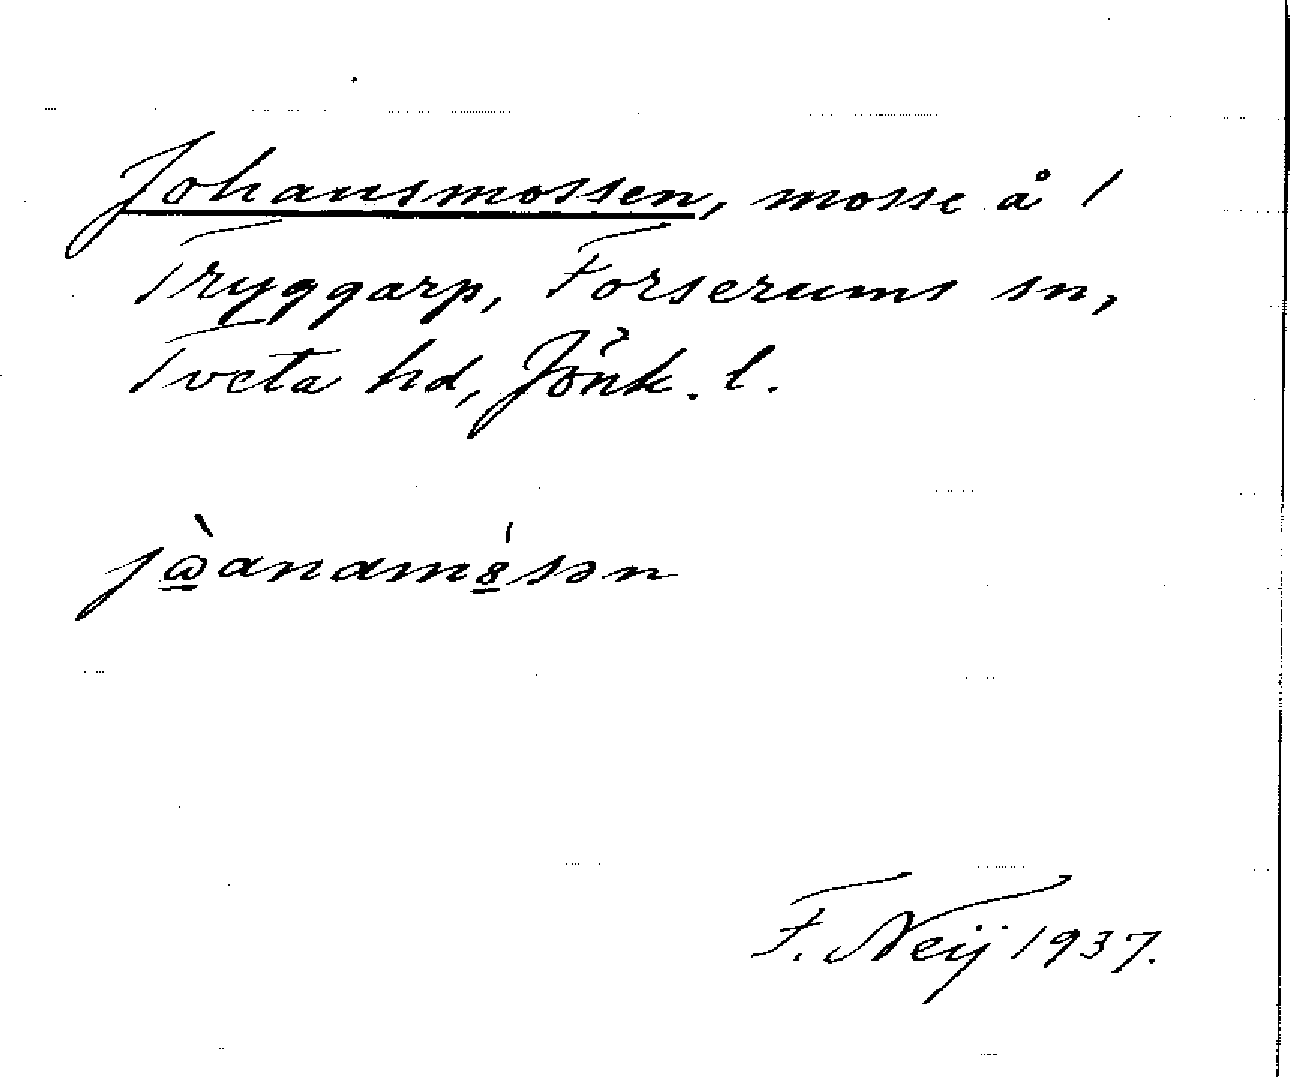 Johansmossen, mosse å 1
Tryggarp, Forserums sn,
Tveta hd, Jönk. l.
F. Neij 1937.